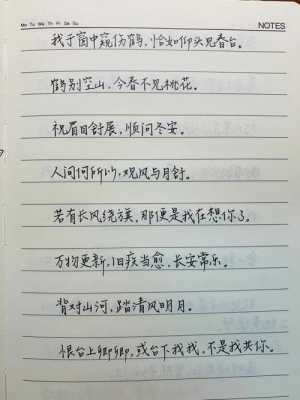 Mo Tu We Th Fr Sa Su
NOTES
我于窗中窥伤鹤，恰如仰头见春台。
鹤别空山，今春不见桃花。
祝眉目舒展，顺问冬安。
人间何所以，观风与月舒。
若有长风绕旗，那便是我在想你了。
万物更新，旧疾当愈，长安常乐。
背对山河，踏清风明月。
恨台上卿卿，或台下我我，不是我共你。